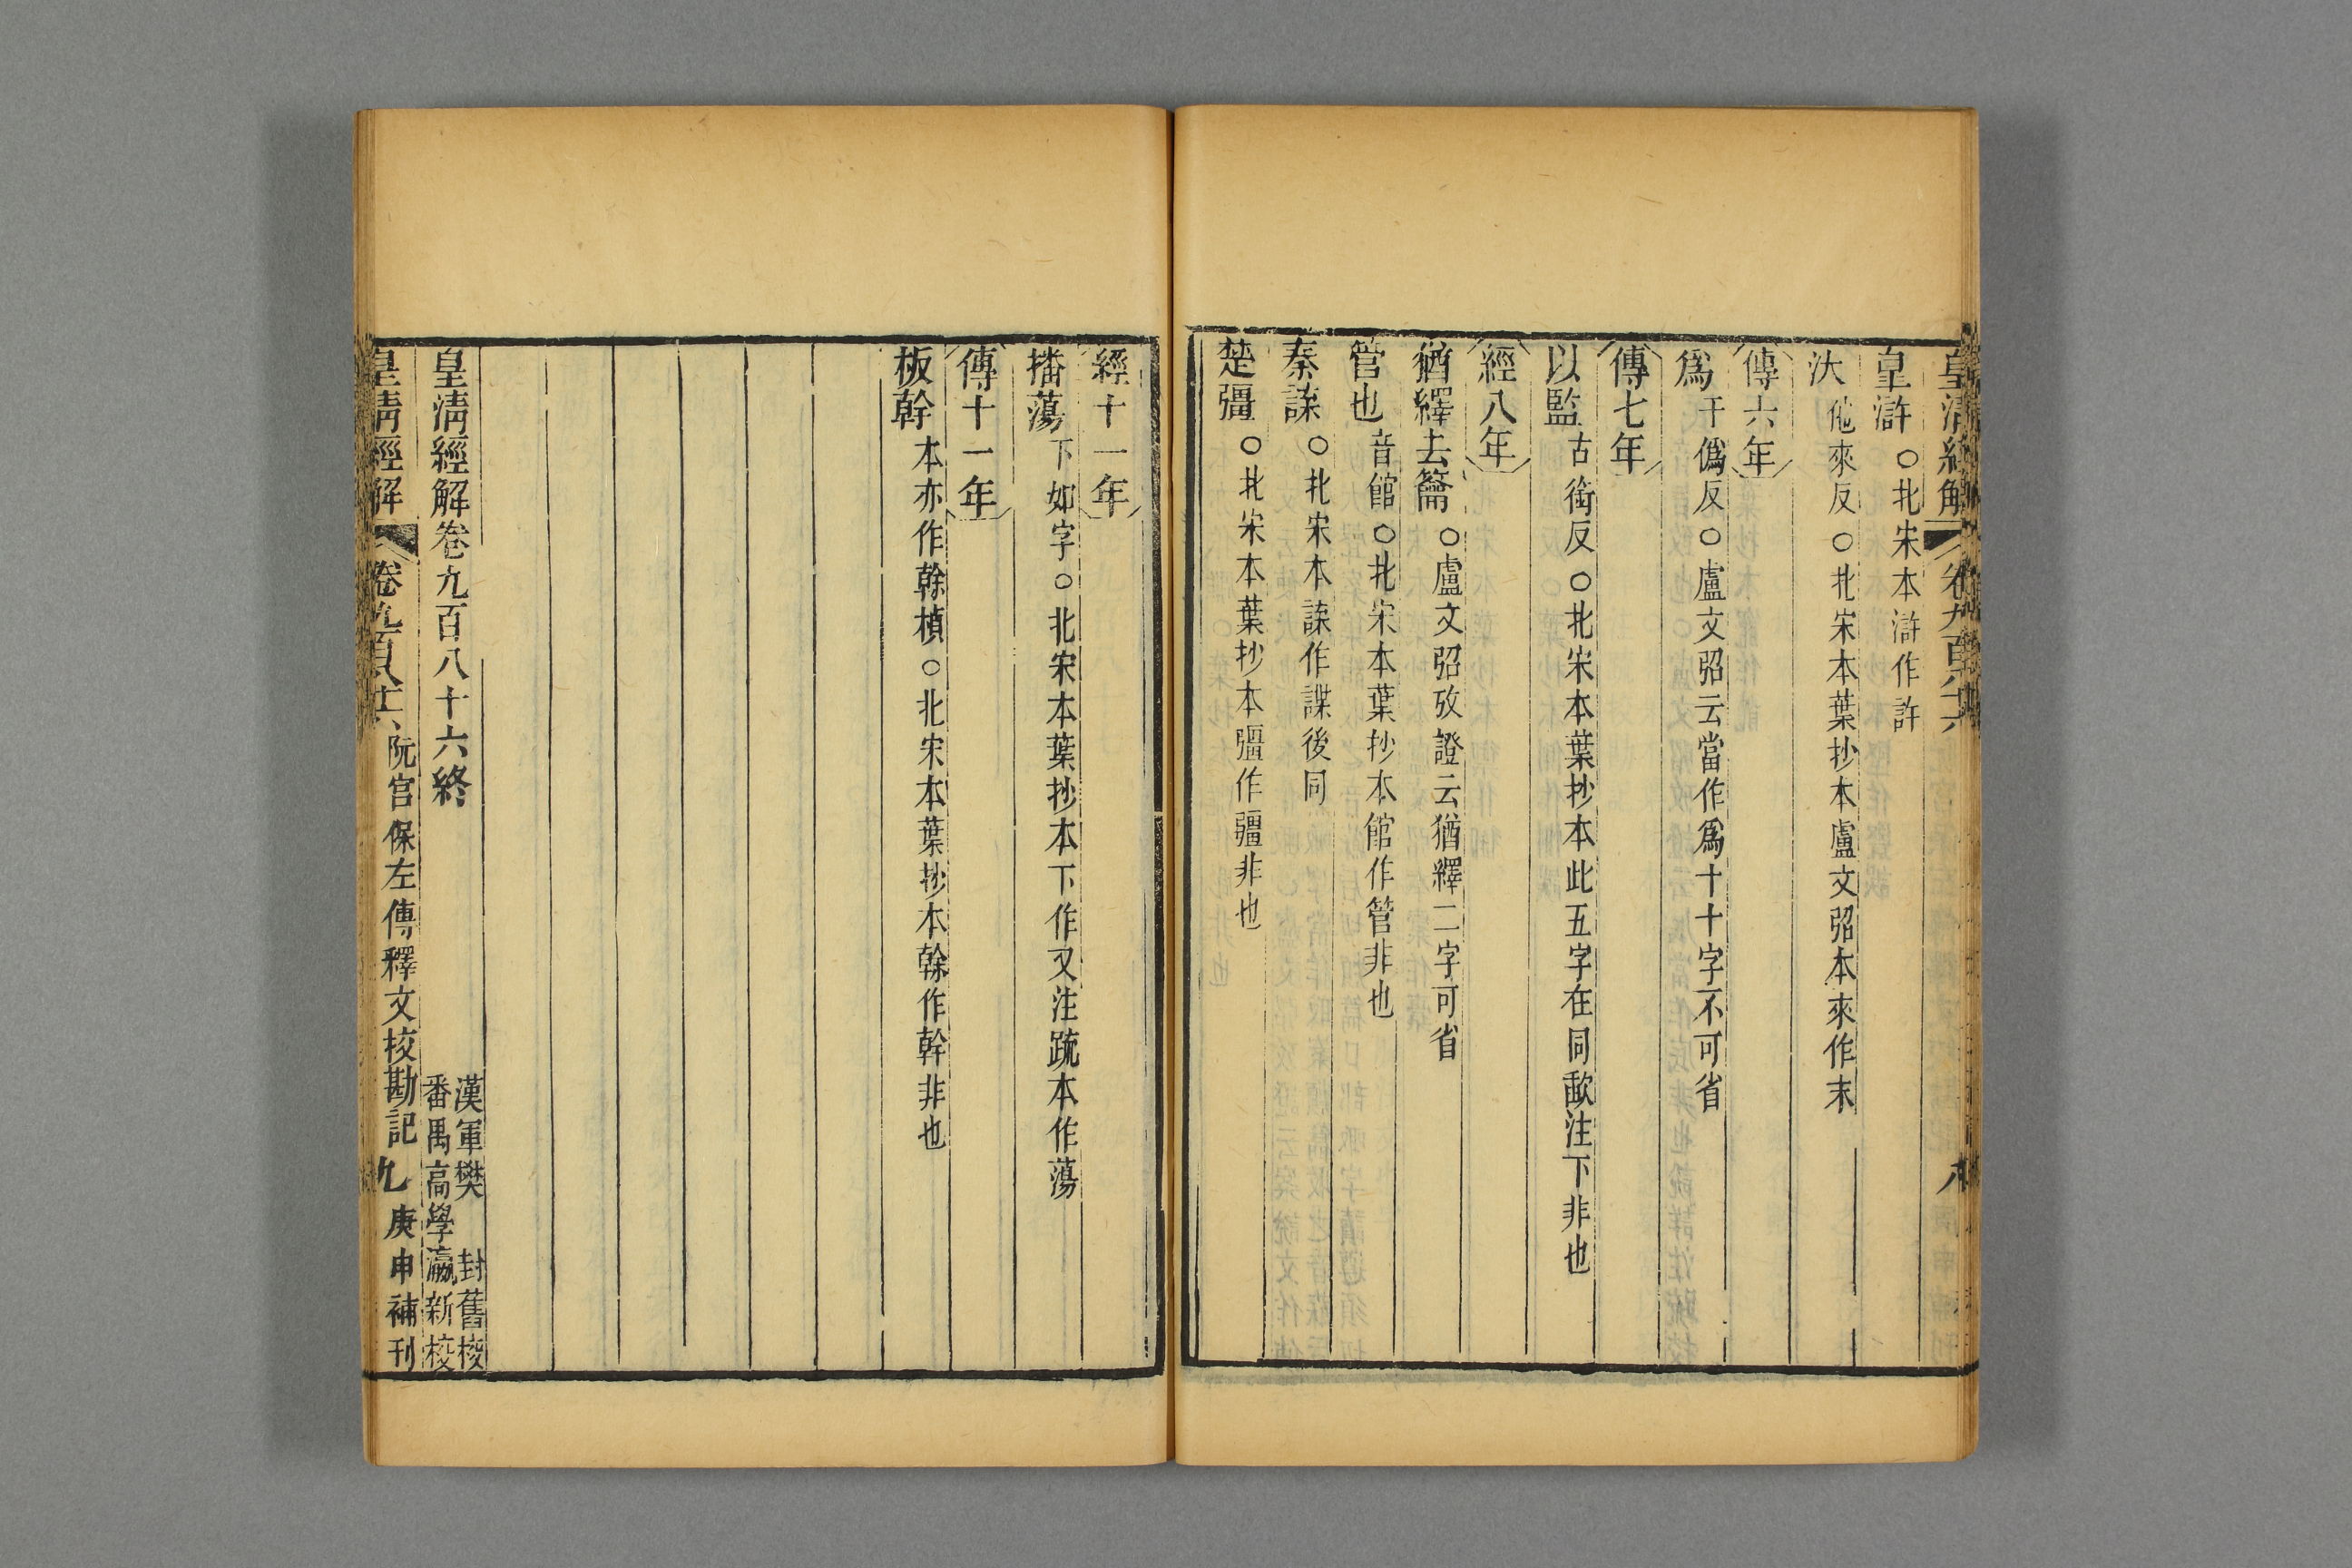 皇清經解 卷九百八十六 八
皇滸○北宋本滸作許
汏他來反○北宋本葉抄本盧文弨本來作末
傳六年
爲于僞反○盧文弨云當作爲十十字不可省
傳七年
以監古銜反○北宋本葉抄本此五字在同歃注下非也
經八年
猶繹去籥○盧文弨攷證云猶繹二字可省
管也音館○北宋本葉抄本館作管非也
秦諜○北宋本諜作諜後同
楚彊○北宋本葉抄本彊作疆非也
經十一年
播蕩下如字○北宋本葉抄本下作又注䟽本作蕩
傳十一年
板幹本亦作榦楨○北宋本葉抄本榦作幹非也
皇清經解卷九百八十六終
漢軍樊 封舊校
番禺高學瀛新校
皇清經解 卷九百八十六 阮宮保左傳釋文校勘記 九 庚申補刊